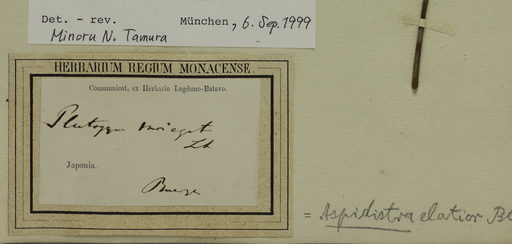 Det. - rev. München, 6. Sep. 1999
Minoru N. Tamura
HERBARIUM REGIUM MONACENSE.
Communicat. ex Herbario Lugduno-Batavo.
Japonia.
= Aspidistra elatior Bl